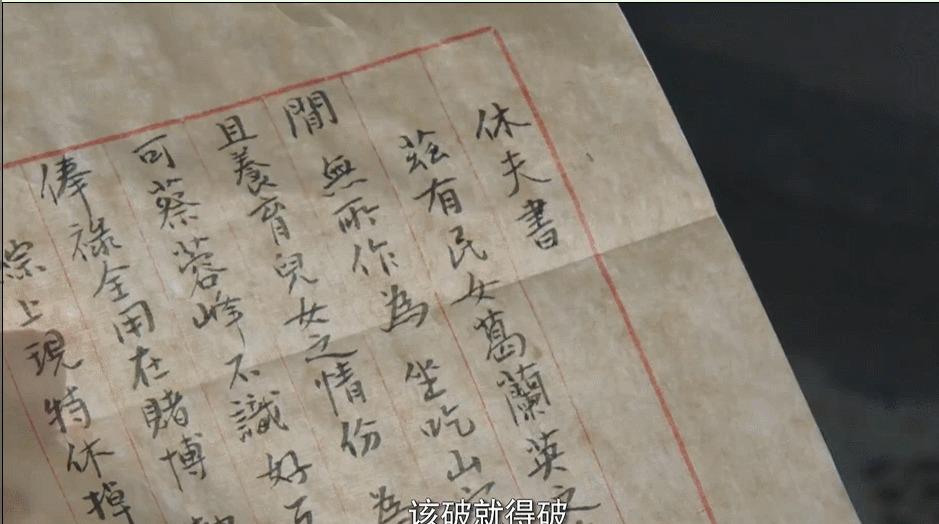 休夫書
茲有民女葛蘭英
閒 無所作為 坐吃山
且養育兒女之情份 為
可蔡蓉峰不識好
俸祿全用在賭博
綜上現特休掉
该破就得破